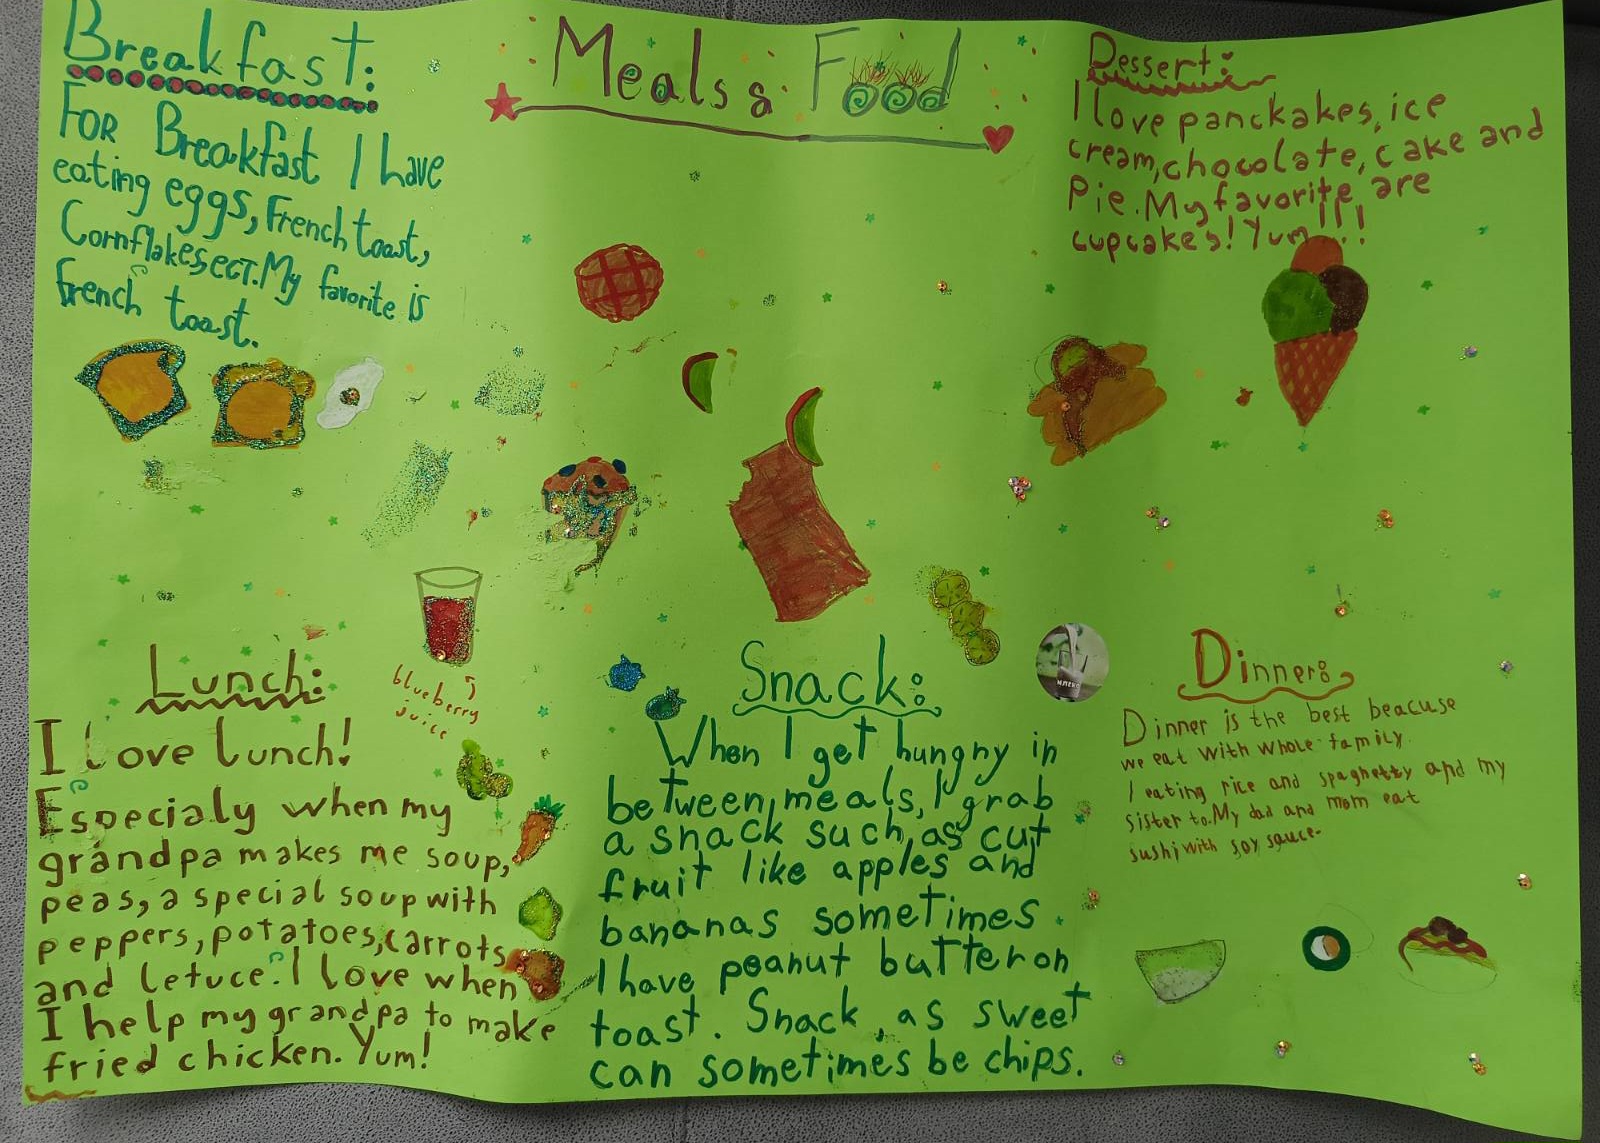 Meals & Food
Breakfast:
For Breakfast I have
eating eggs, French toast,
Cornflakes, ect. My favorite is
french toast.
Dessert:
I love panckakes, ice
cream, chocolate, cake and
Pie. My favorite are
cupcakes! Yum!!!
blueberry
juice
Lunch:
I Love lunch!
Especialy when my
grandpa makes me soup,
peas, a special soup with
peppers, potatoes, carrots
and letuce. I love when
I help my grandpa to make
fried chicken. Yum!
Snack:
When I get hungny in
between, meals, I grab
a snack such, as cut
fruit like apples and
bananas sometimes
I have peanut butter on
toast. Snack, as sweet
can sometimes be chips.
Dinner:
Dinner is the best beacuse
we eat with whole family.
I eating rice and spaghetty and my
sister to. My dad and mom eat
sushi with soy sauce.